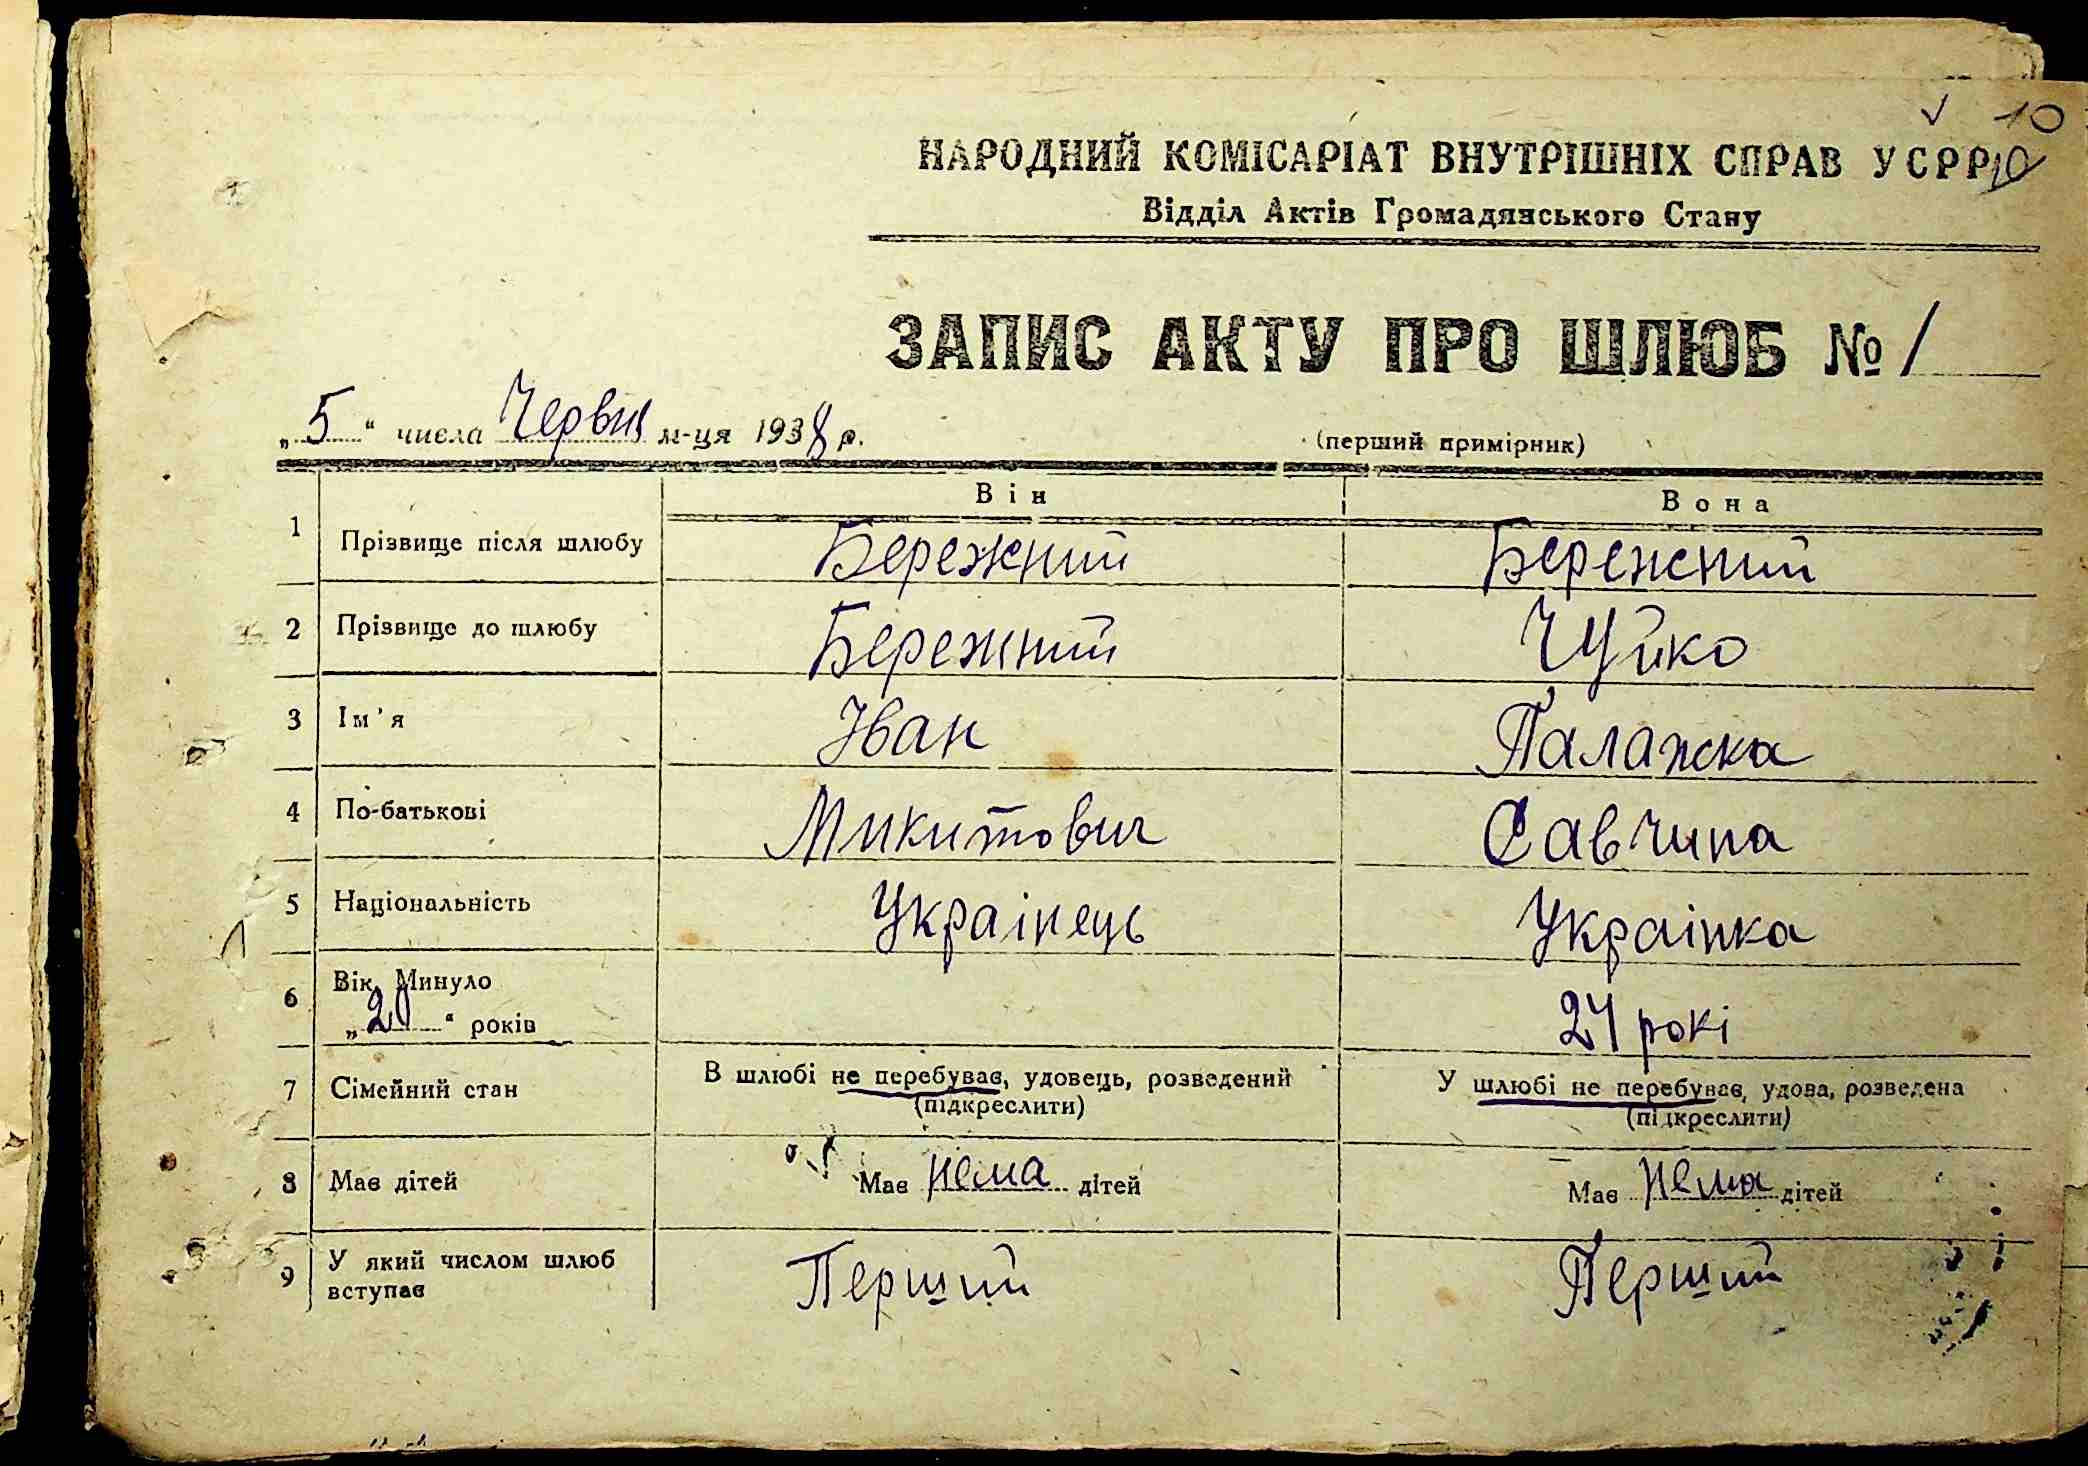 10
НАРОДНИЙ КОМІСАРІАТ ВНУТРІШНІХ СПРАВ УСРР
10
Відділ Актів Громадянського Стану
ЗАПИС АКТУ ПРО ШЛЮБ № 1
„5“ числа Червня м-ця 1938 р.
(перший примірник)
Він Вона
1 Прізвище після шлюбу Бережний Бережний
2 Прізвище до шлюбу Бережний Чуйко
3 Ім'я Іван Палажка
4 По-батькові Микитович Савчина
5 Національність Украінець Украінка
6 Вік. Минуло
„20“ років 24 рокі
7 Сімейний стан В шлюбі не перебував, удовець, розведений У шлюбі не перебуває, удова, розведена
(підкреслити) (підкреслити)
8 Має дітей Має нема дітей Має нема дітей
9 У який числом шлюб
вступає Перший Перший